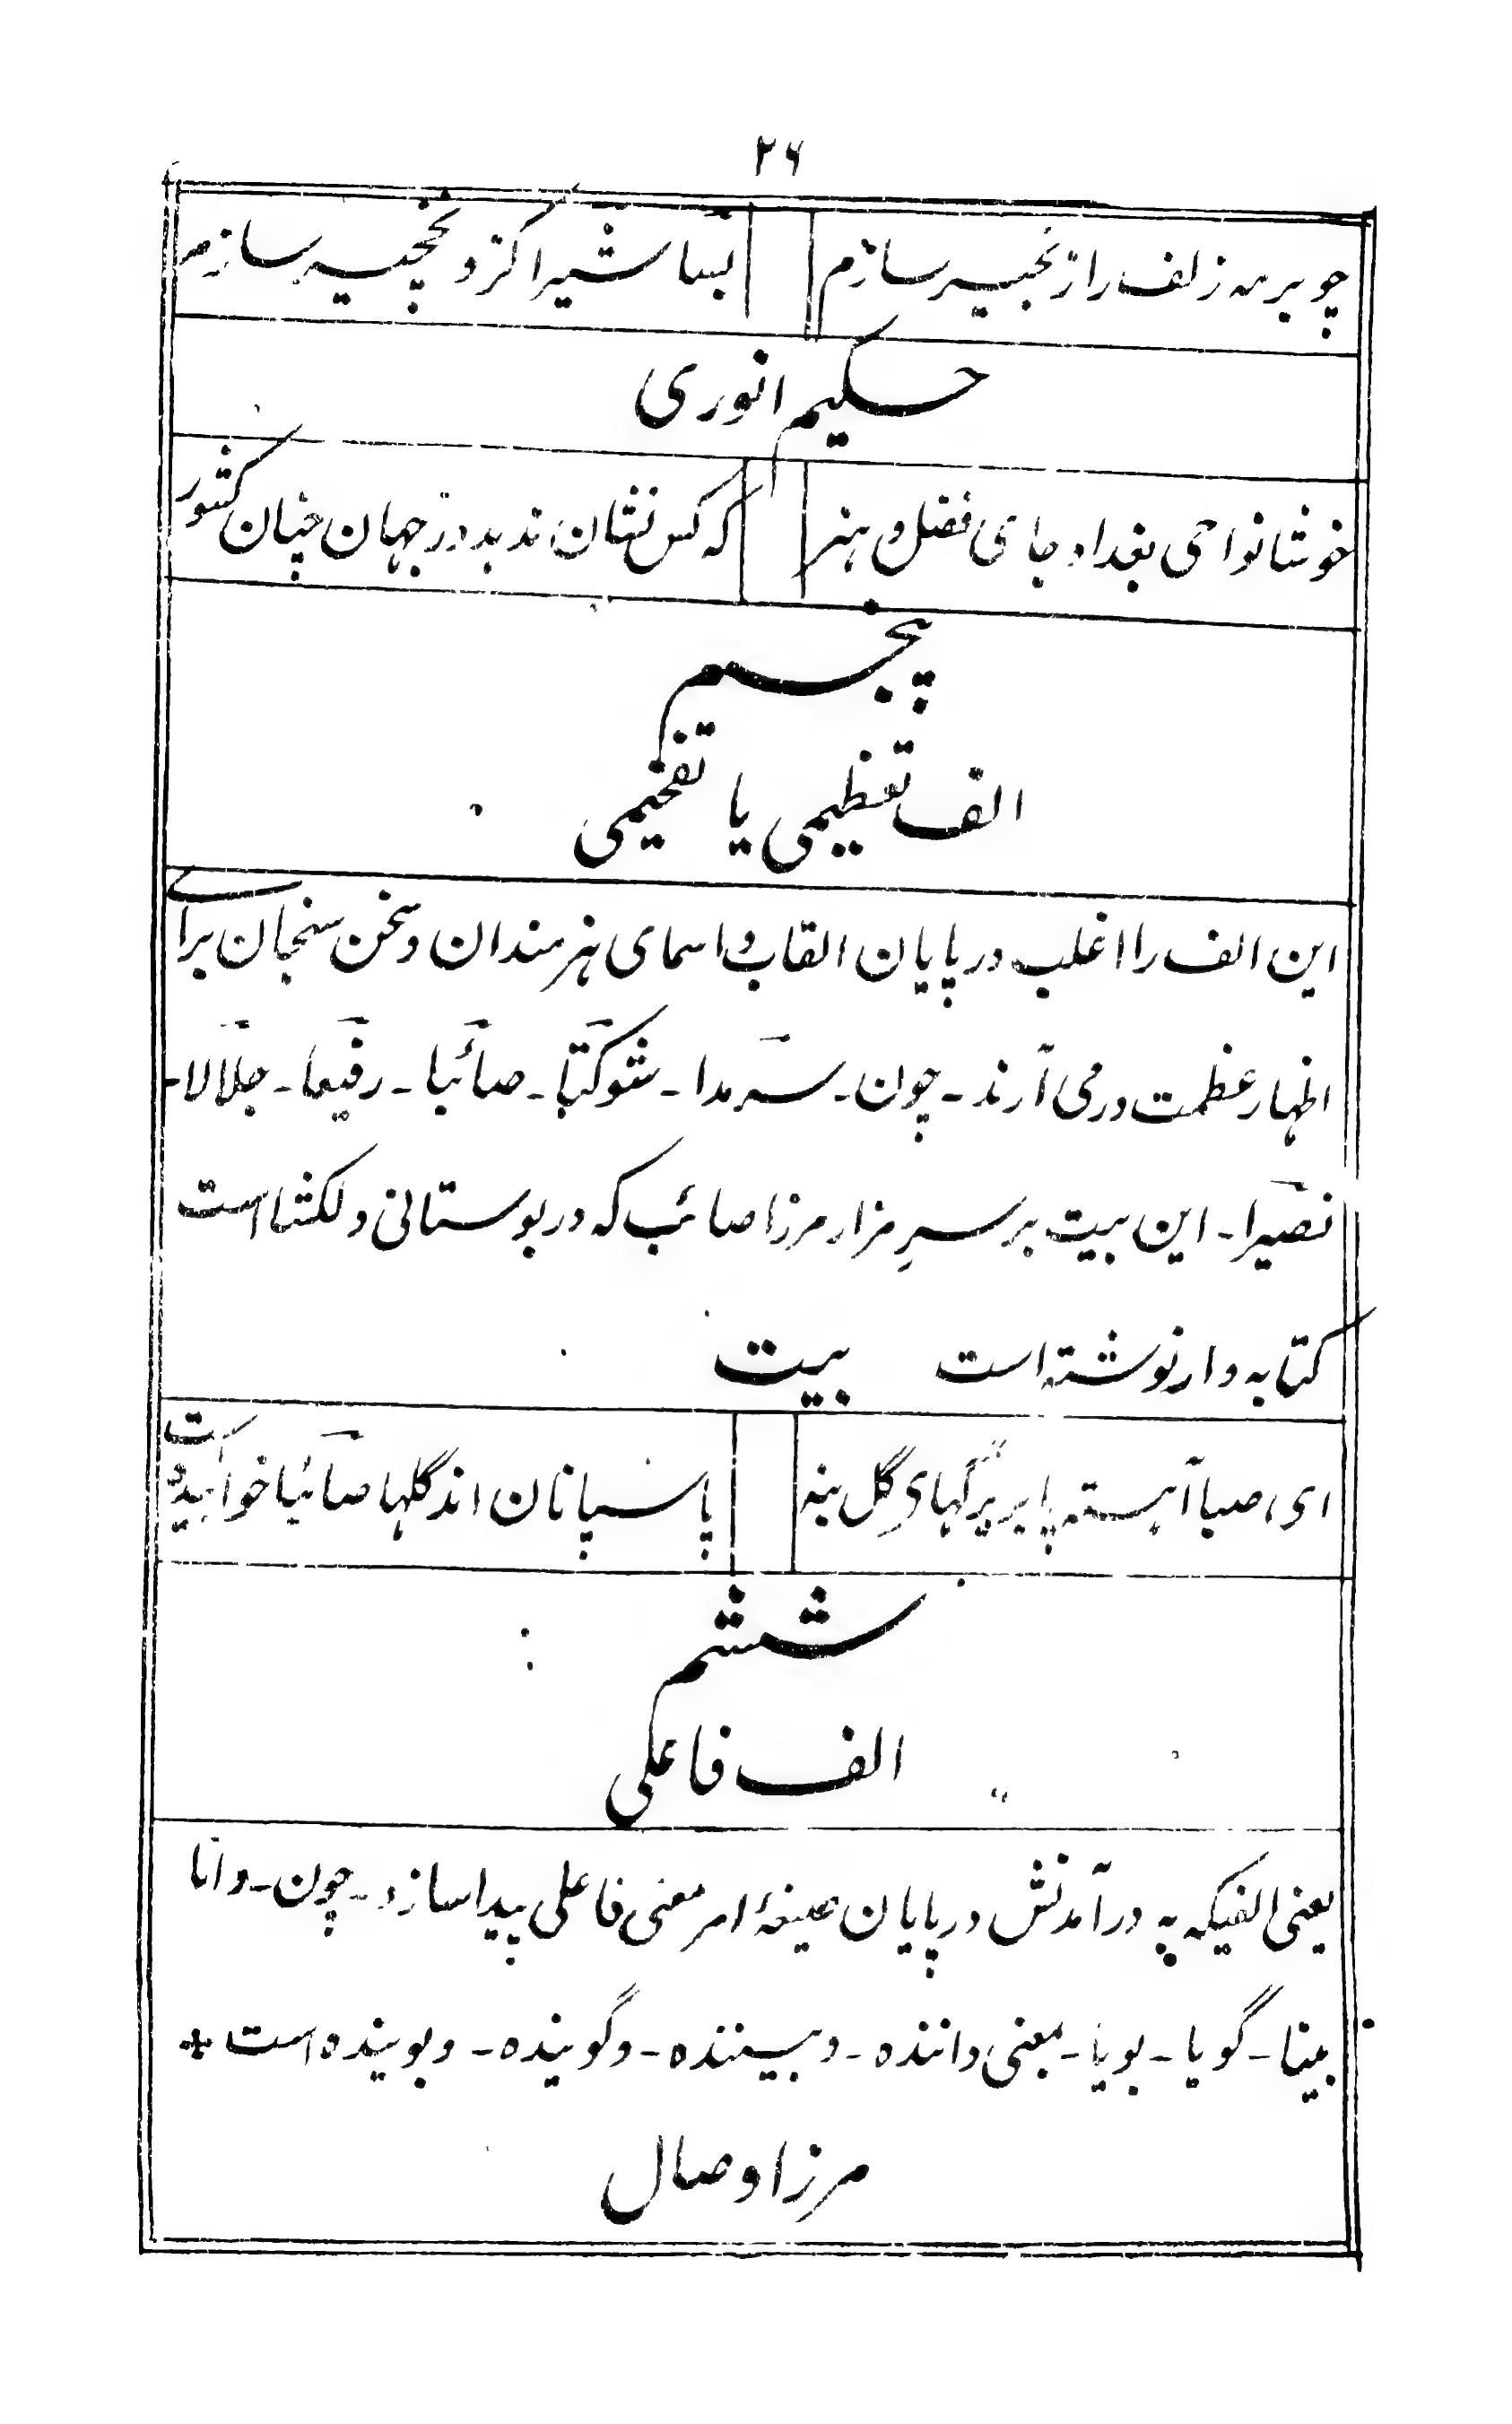 ۲۶
چو برمه زلف را زنجیر سازم بسا شیرا کزو نخچیر سازم
حکیم انوری
خوشا نواحی بغداد جای فضل و هنر که کس نشان ندهد در جهان چنان کشور
پنجم
الف تعظیمی یا تفخیمی
این الف را اغلب در پایان القاب و اسمای هنرمندان و سخن سنجان برای
اظهار عظمت در می آرند - چون - سرمدا - شوکتا - صائبا - رفیعا - جلالا -
نصیرا - این بیت بر سرِ مزار مرزا صائب که در بوستانی دلکشا است
کتابه وار نوشته است بیت
ای صبا آهسته پا بر برگهای گل بنه پاسبانان اند گلها صائبا خوابیده است
ششم
الف فاعلی
یعنی الفیکه به درآمدنش در پایان صیغهٔ امر معنی فاعلی پیدا سازد - چون - دانا
بینا - گویا - بویا - بمعنی داننده - و بیننده - و گوینده - و بوینده است +
مرزا وصال